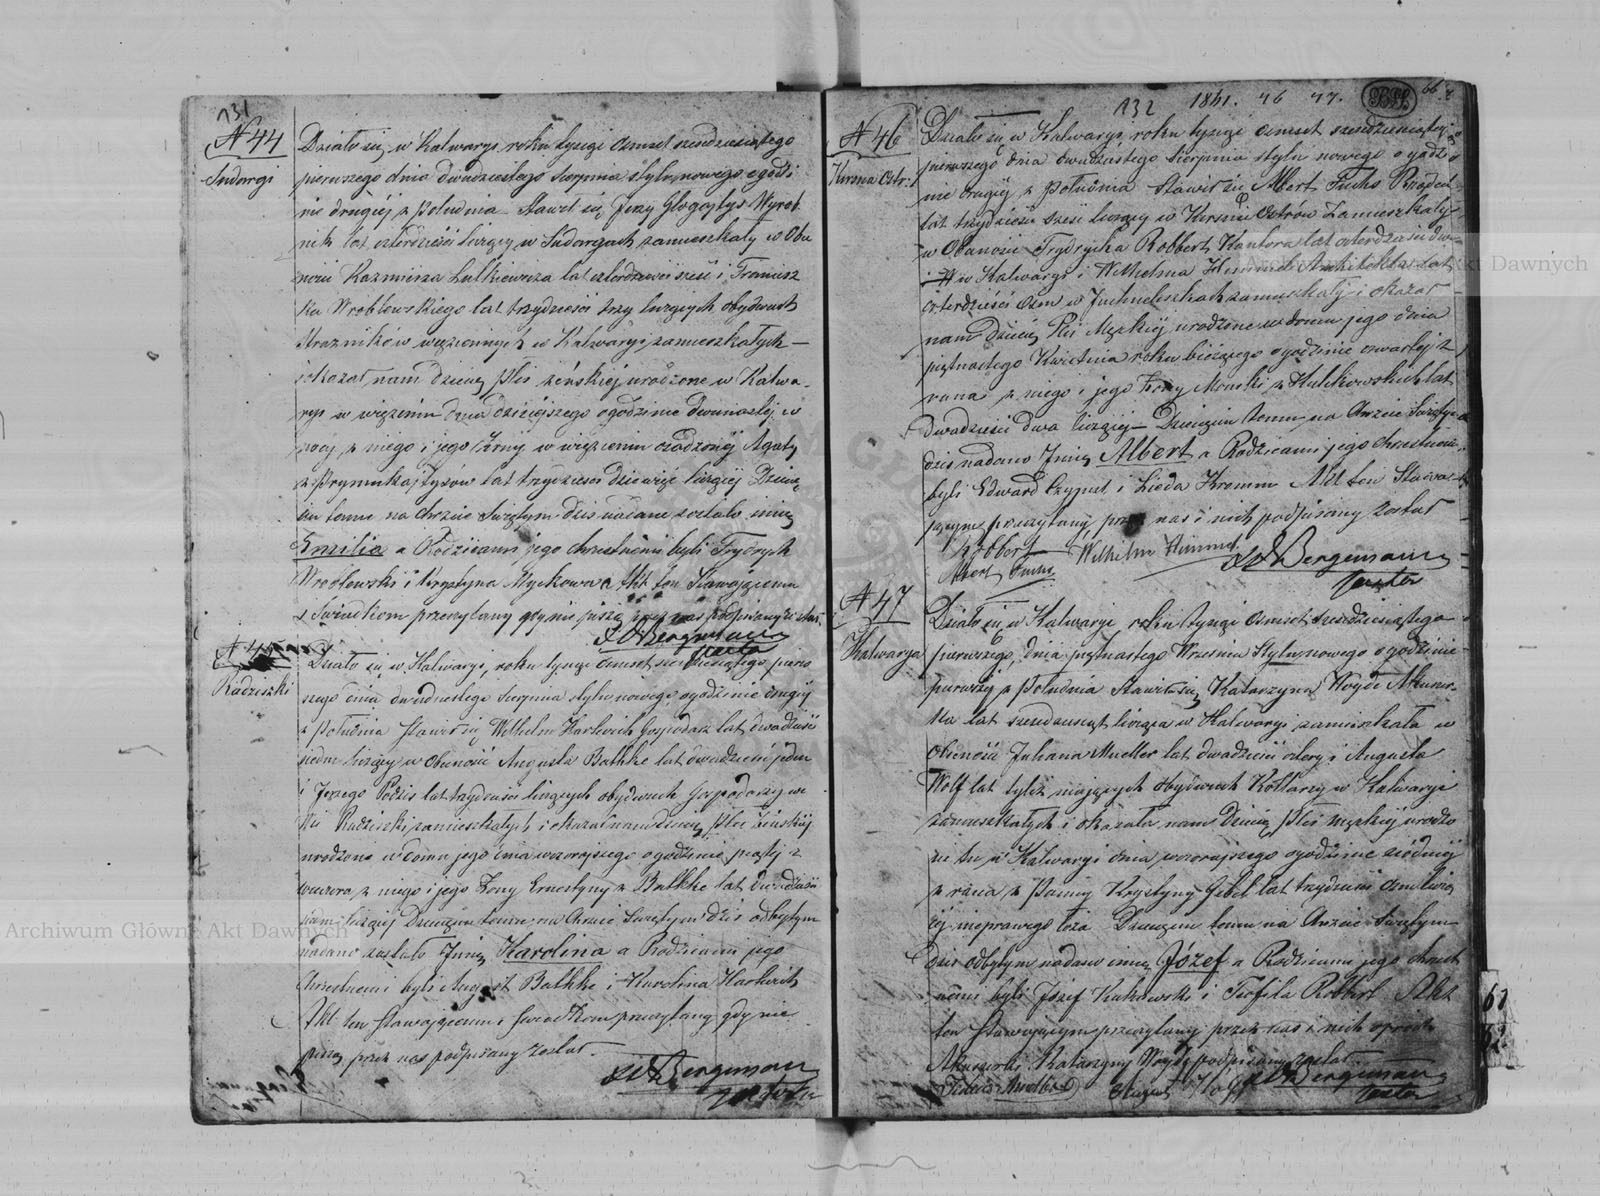 131
N 44
Sudargi
Działo się w Kalwaryi roku tysiąc osmset sześćdziesiątego
pierwszego dnia dwudziestego Sierpnia stylu nowego o godzi
nie drugiej z południa Stawił się Jerzy Wyrob
nik lat czterdzieści liczący w Sudargach zamieszkały w Obe
cności Kazmierza Lutkiewicza lat czterdzieści sześć i Francisz
ka Wroblewskiego lat trzydzieści trzy liczących obydwoch
Strażników więziennych w Kalwaryi zamieszkałych —
i okazał nam dziecię płci żeńskiej urodzone w Kalwa
ryi w więzieniu dnia dzisiejszego o godzinie dwunastej w
nocy z niego i jego Żony w więzieniu osadzonej Agaty
z lat trzydzieści dziewięć liczącej Dziecię
ciu temu na chrzcie Świętym dziś nadane zostało imię
Emilia a Rodzicami jego chrzestnemi byli Frydrych
Wroblewski i Krystyna Myckowa Akt ten Stawającemu
i Świadkom przeczytany gdy nie piszą przez nas podpisany został.
Bergemann
Pastor
N 45
Radziszki
Działo się w Kalwaryi, roku tysiąc osmset sześćdziesiątego pierw
szego dnia dwudziestego Sierpnia stylu nowego o godzinie drugiej
z południa stawił się Wilhelm Gospodarz lat dwadzieścia
siedm liczący w Obecności Augusta Bathke lat dwadzieścia jeden
i Jerzego lat trzydzieści liczących obydwoch Gospodarzy we
Wsi Radziszki zamieszkałych i okazał nam dziecię płci Żeńskiej
urodzone w domu jego dnia wczorajszego o godzinie piątej z
wieczora z niego i jego Żony Ernestyny z Bathke lat dwadzieścia
liczącej Dziecięciu temu na Chrzcie Świętym dziś odbytym
nadano zostało Imię Karolina a Rodzicami jego
Chrzestnemi byli August Bathke i Karolina
Akt ten stawającemu i Świadkom przeczytany gdy nie
piszą przez nas podpisany został.
Bergemann
Pastor
132 1861. 46 47. 66
N 46
Kirsna Ostr:
Działo się w Kalwaryi, roku tysiąc osmset sześćdziesiątego
pierwszego dnia dwudziestego Sierpnia stylu nowego o godzi
nie drugiej z południa Stawił się Albert Fuchs Rządca
lat trzydzieści sześć liczący w Kirsnie Ostrów Zamieszkały
w Obecności Frydrycha Robbert Kantora lat czterdzieści dwa
w Kalwaryi i Wilhelma Himmel Architekta lat
czterdzieści osm w zamieszkały i okazał
nam dziecię Płci Męzkiej urodzone w domu jego dnia
piętnastego Kwietnia roku bieżącego o godzinie czwartej z
rana z niego i jego Żony z lat
dwadzieścia dwa liczącej Dziecięciu temu na Chrzcie Świętym
dziś nadano Imię Albert a Rodzicami jego chrzestnemi
byli Edward i Lieda Kremm Akt ten Stawa
jącym przeczytany przez nas i nich podpisany został
Robbert Wilhelm Himmel
Albert Fuchs Bergemann
Pastor
N 47
Kalwarya
Działo się w Kalwaryi roku tysiąc osmset sześćdziesiątego
pierwszego, dnia piętnastego Września Stylu nowego o godzinie
pierwszej z południa Stawiła się Katarzyna Woyde Akuszer
ka lat sześćdziesiąt licząca w Kalwaryi zamieszkała w
Obecności Juliana Mueller lat dwadzieścia cztery i Augusta
Wolf lat tyleż mających obydwoch Kotlarzy w Kalwaryi
zamieszkałych i okazała nam Dziecię płci męzkiej urodzo
ne tu w Kalwaryi dnia wczorajszego o godzinie siodmej
z rana z Panny Krystyny Gebel lat trzydzieści osm liczą
cej nieprawego łoża Dziecięciu temu na Chrzcie Świętym
dziś odbytym nadano imię Józef a Rodzicami jego chrzest
nemi byli Józef i Teofila Robbert Akt
ten stawającym przeczytany przez nas i nich oprócz
Akuszerki Katarzyny Woyde podpisany został.
Mueller August Bergemann
Pastor
Archiwum Główne Akt Dawnych
Archiwum Główne Akt Dawnych